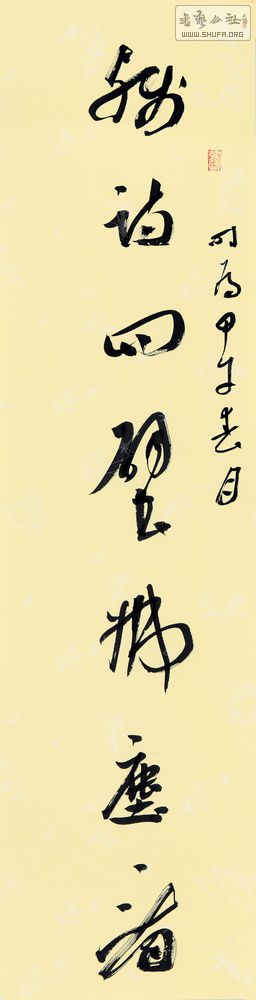 書藝公社
WWW.SHUFA.ORG
時為甲午春月
殘詩四壁拂塵看